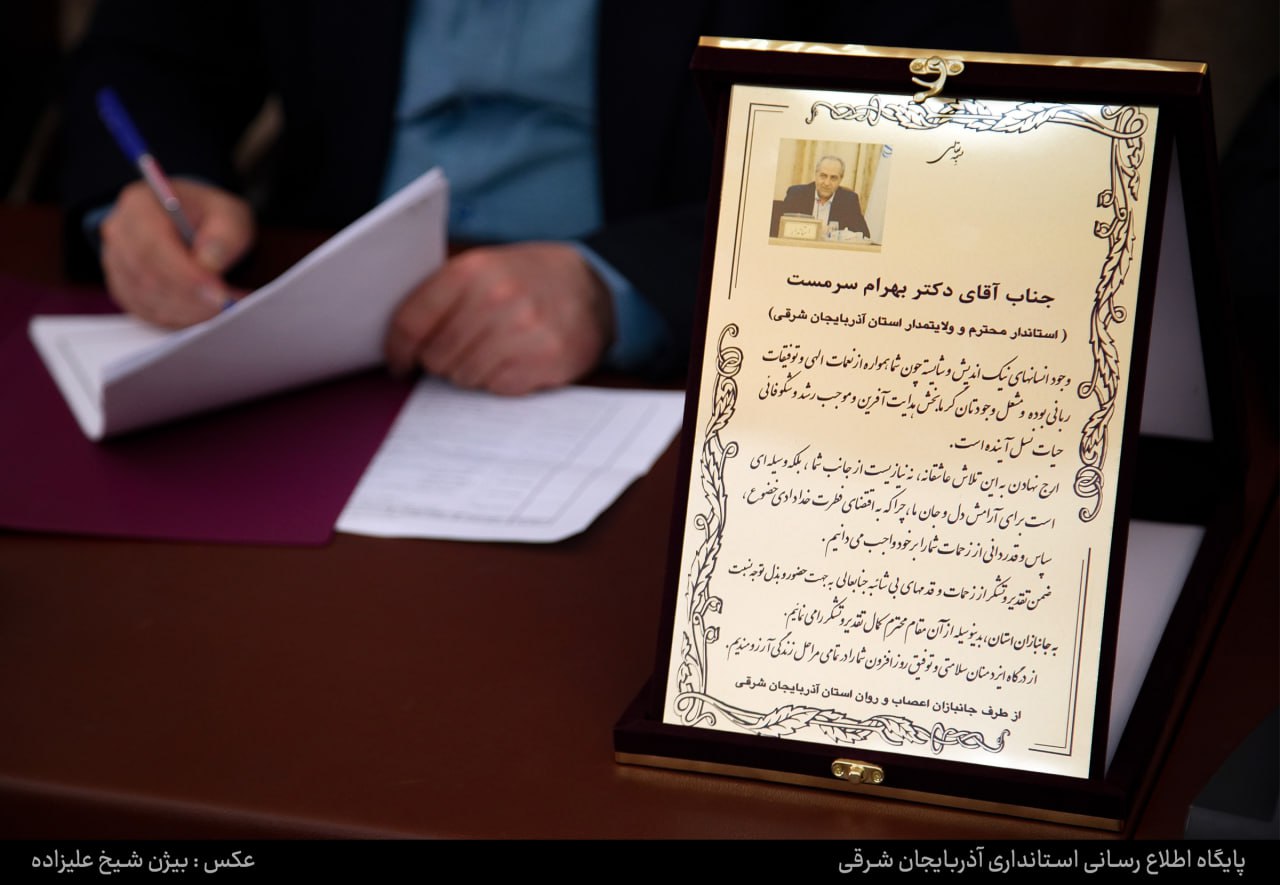 بسمه تعالی
استاندار
جناب آقای دکتر بهرام سرمست
( استاندار محترم و ولایتمدار استان آذربایجان شرقی)
وجود انسانهای نیک اندیش و شایسته چون شما همواره از نعمات الهی و توفیقات
ربانی بوده و مشعل وجودتان گرمابخش هدایت آفرین و موجب رشد و شکوفائی
حیات نسل آینده است.
ارج نهادن به این تلاش عاشقانه، نه نیازیست از جانب شما ، بلکه وسیله ای
است برای آرامش دل و جان ما، چرا که به اقتضای فطرت خدادادی خضوع ،
سپاس و قدردانی از زحمات شما را بر خود واجب می دانیم .
ضمن تقدیر و تشکر از زحمات و قدمهای بی شائبه جنابعالی به جهت حضور و بذل توجه نسبت
به جانبازان استان، بدینوسیله از آن مقام محترم کمال تقدیر و تشکر را می نمائیم.
از درگاه ایزد منان سلامتی و توفیق روز افزون شما را در تمامی مراحل زندگی آرزومندیم.
از طرف جانبازان اعصاب و روان استان آذربایجان شرقی
پایگاه اطلاع رسانی استانداری آذربایجان شرقی
عکس : بیژن شیخ علیزاده